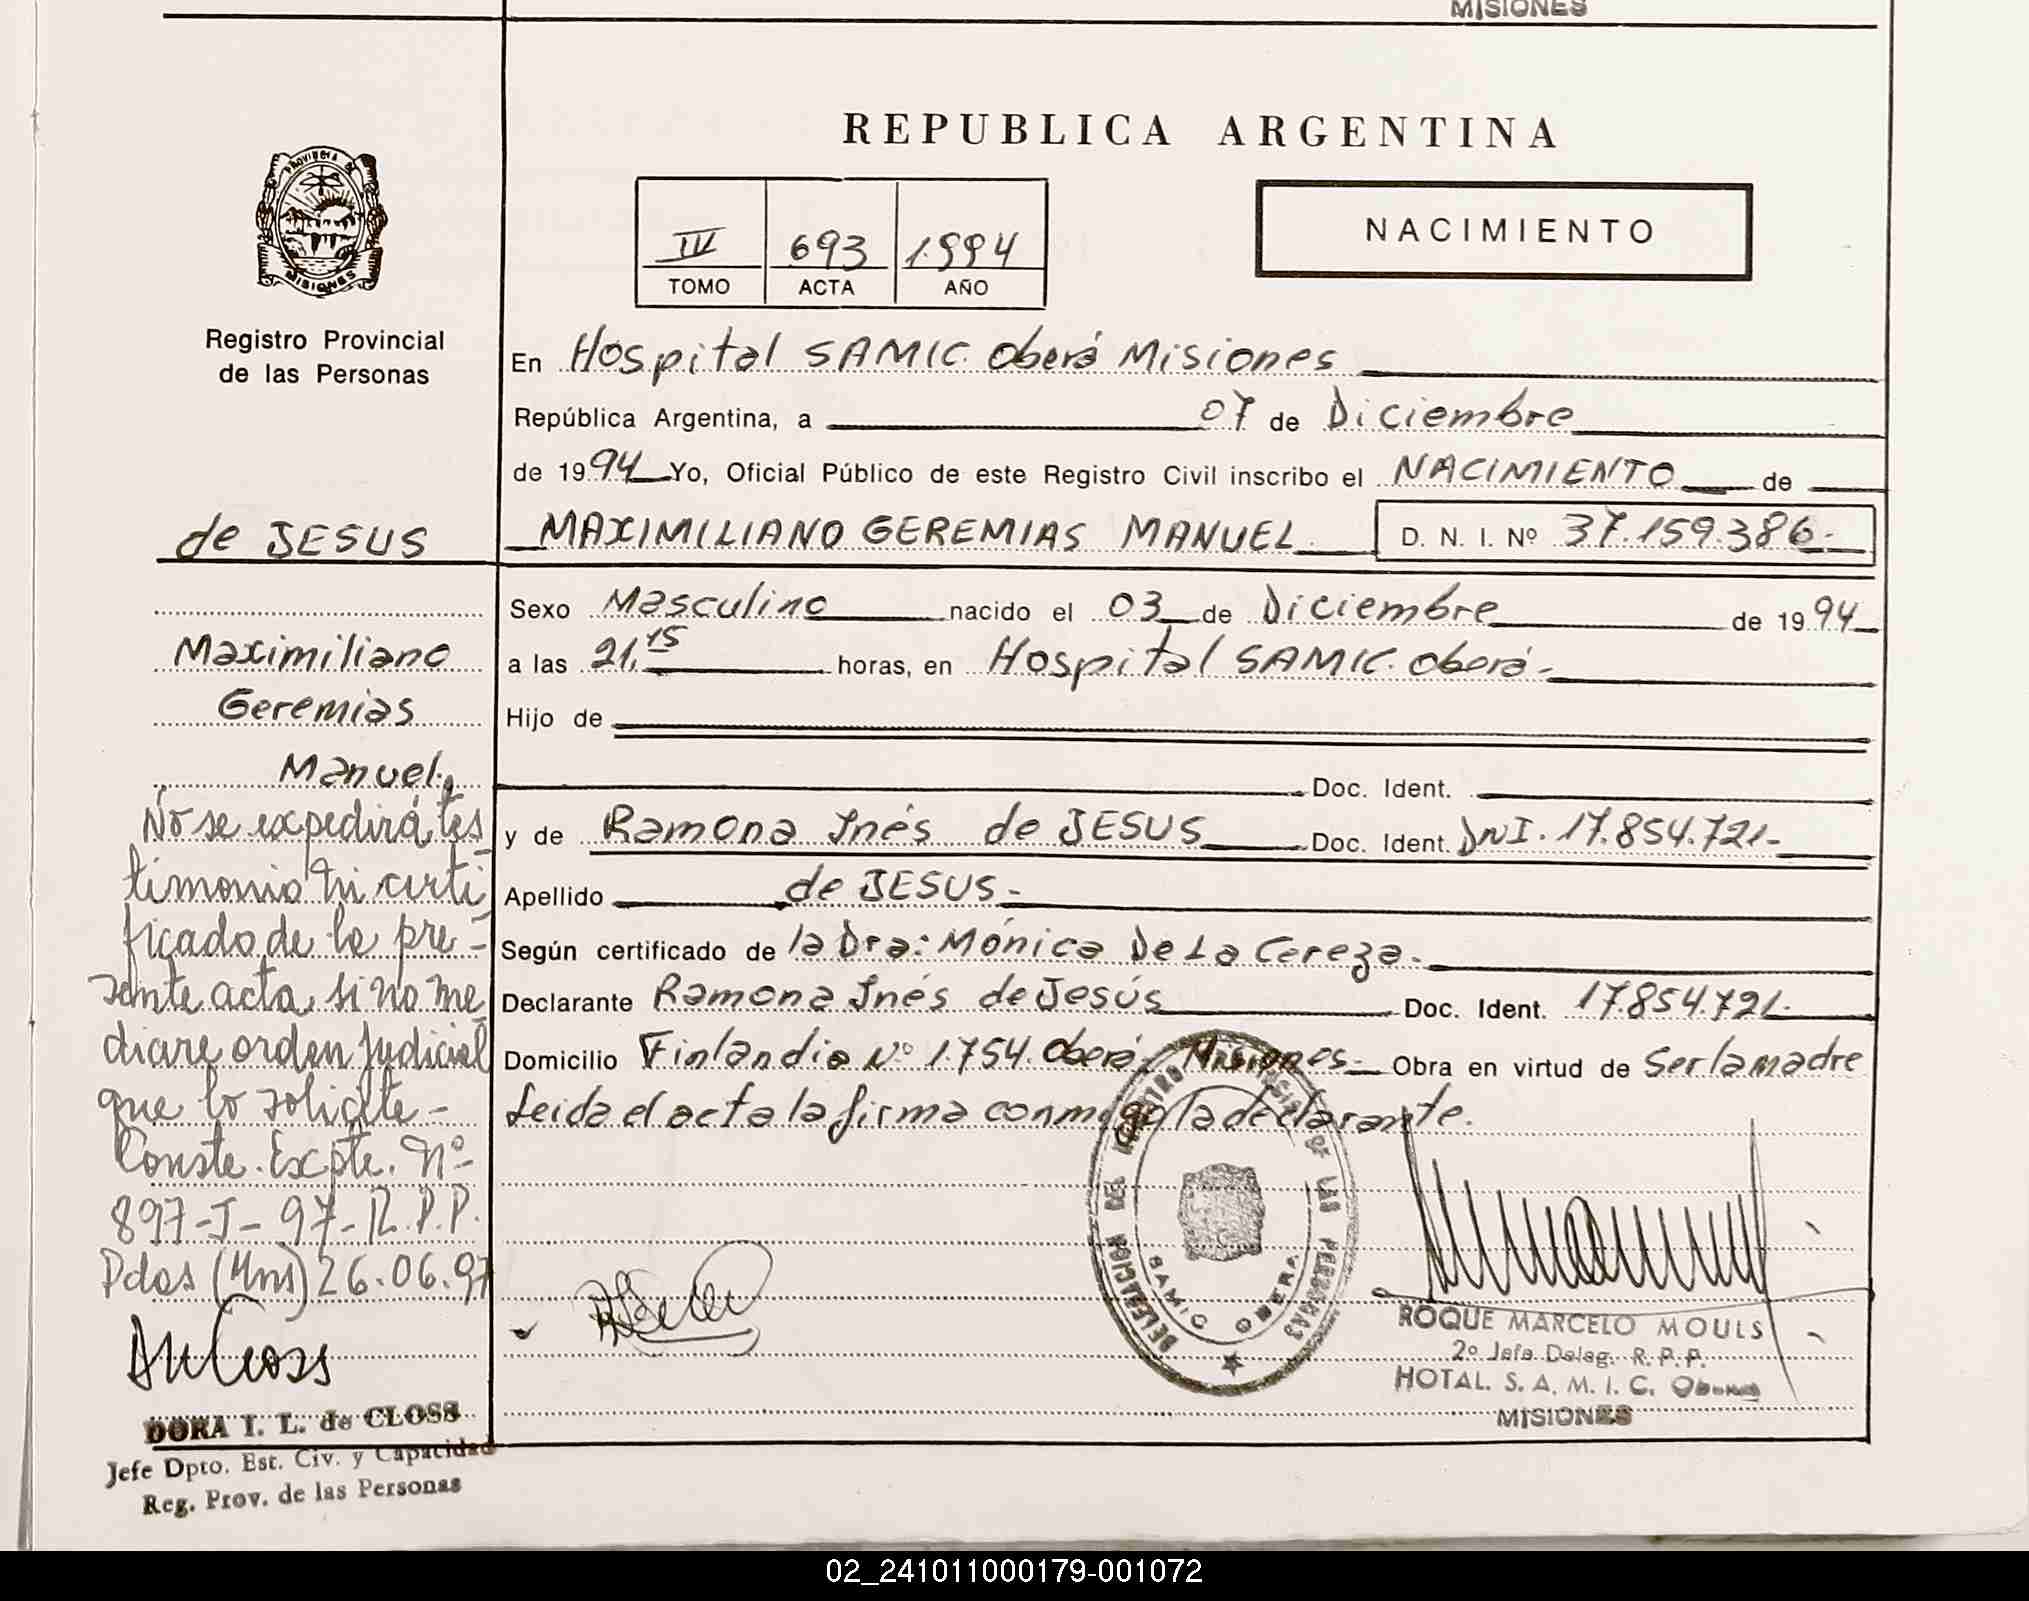 MISIONES
REPUBLICA ARGENTINA
PROVINCIA DE
MISIONES
IV 693 1.994
TOMO ACTA AÑO
NACIMIENTO
Registro Provincial
de las Personas
En Hospital SAMIC. Oberá Misiones
República Argentina, a 07 de Diciembre
de 1994 Yo, Oficial Público de este Registro Civil inscribo el NACIMIENTO de
de JESUS
MAXIMILIANO GEREMIAS MANUEL. D. N. I. Nº 37.159.386.-
Sexo Masculino nacido el 03 de Diciembre de 1994
a las 21,15 horas, en Hospital SAMIC. Oberá-
Hijo de
Doc. Ident.
y de Ramona Inés de JESUS Doc. Ident. DNI. 17.854.721-
Apellido de JESUS-
Según certificado de la Dra: Mónica De La Cereza.
Declarante Ramona Inés de Jesús Doc. Ident. 17.854.721.
Domicilio Finlandia Nº 1.754. Oberá- Misiones- Obra en virtud de Ser la madre
Leida el acta la firma conmigo la declarante.
Maximiliano
Geremias
Manuel.
No se expedirá tes
timonio ni certi
ficado de la pre-
sente acta, si no me
diare orden judicial
que lo solicite-
Conste. Expte. Nº
897-J-97-R.P.P.
Pdas (Mns) 26.06.97
DORA I. L. de CLOSS
Jefe Dpto. Est. Civ. y Capacidad
Reg. Prov. de las Personas
DELEGACION DEL REGISTRO PROVINCIAL DE LAS PERSONAS
SAMIC OBERA
ROQUE MARCELO MOULS
2º Jefe Deleg. R. P. P.
HOTAL. S. A. M. I. C. Oberá
MISIONES
02_241011000179-001072